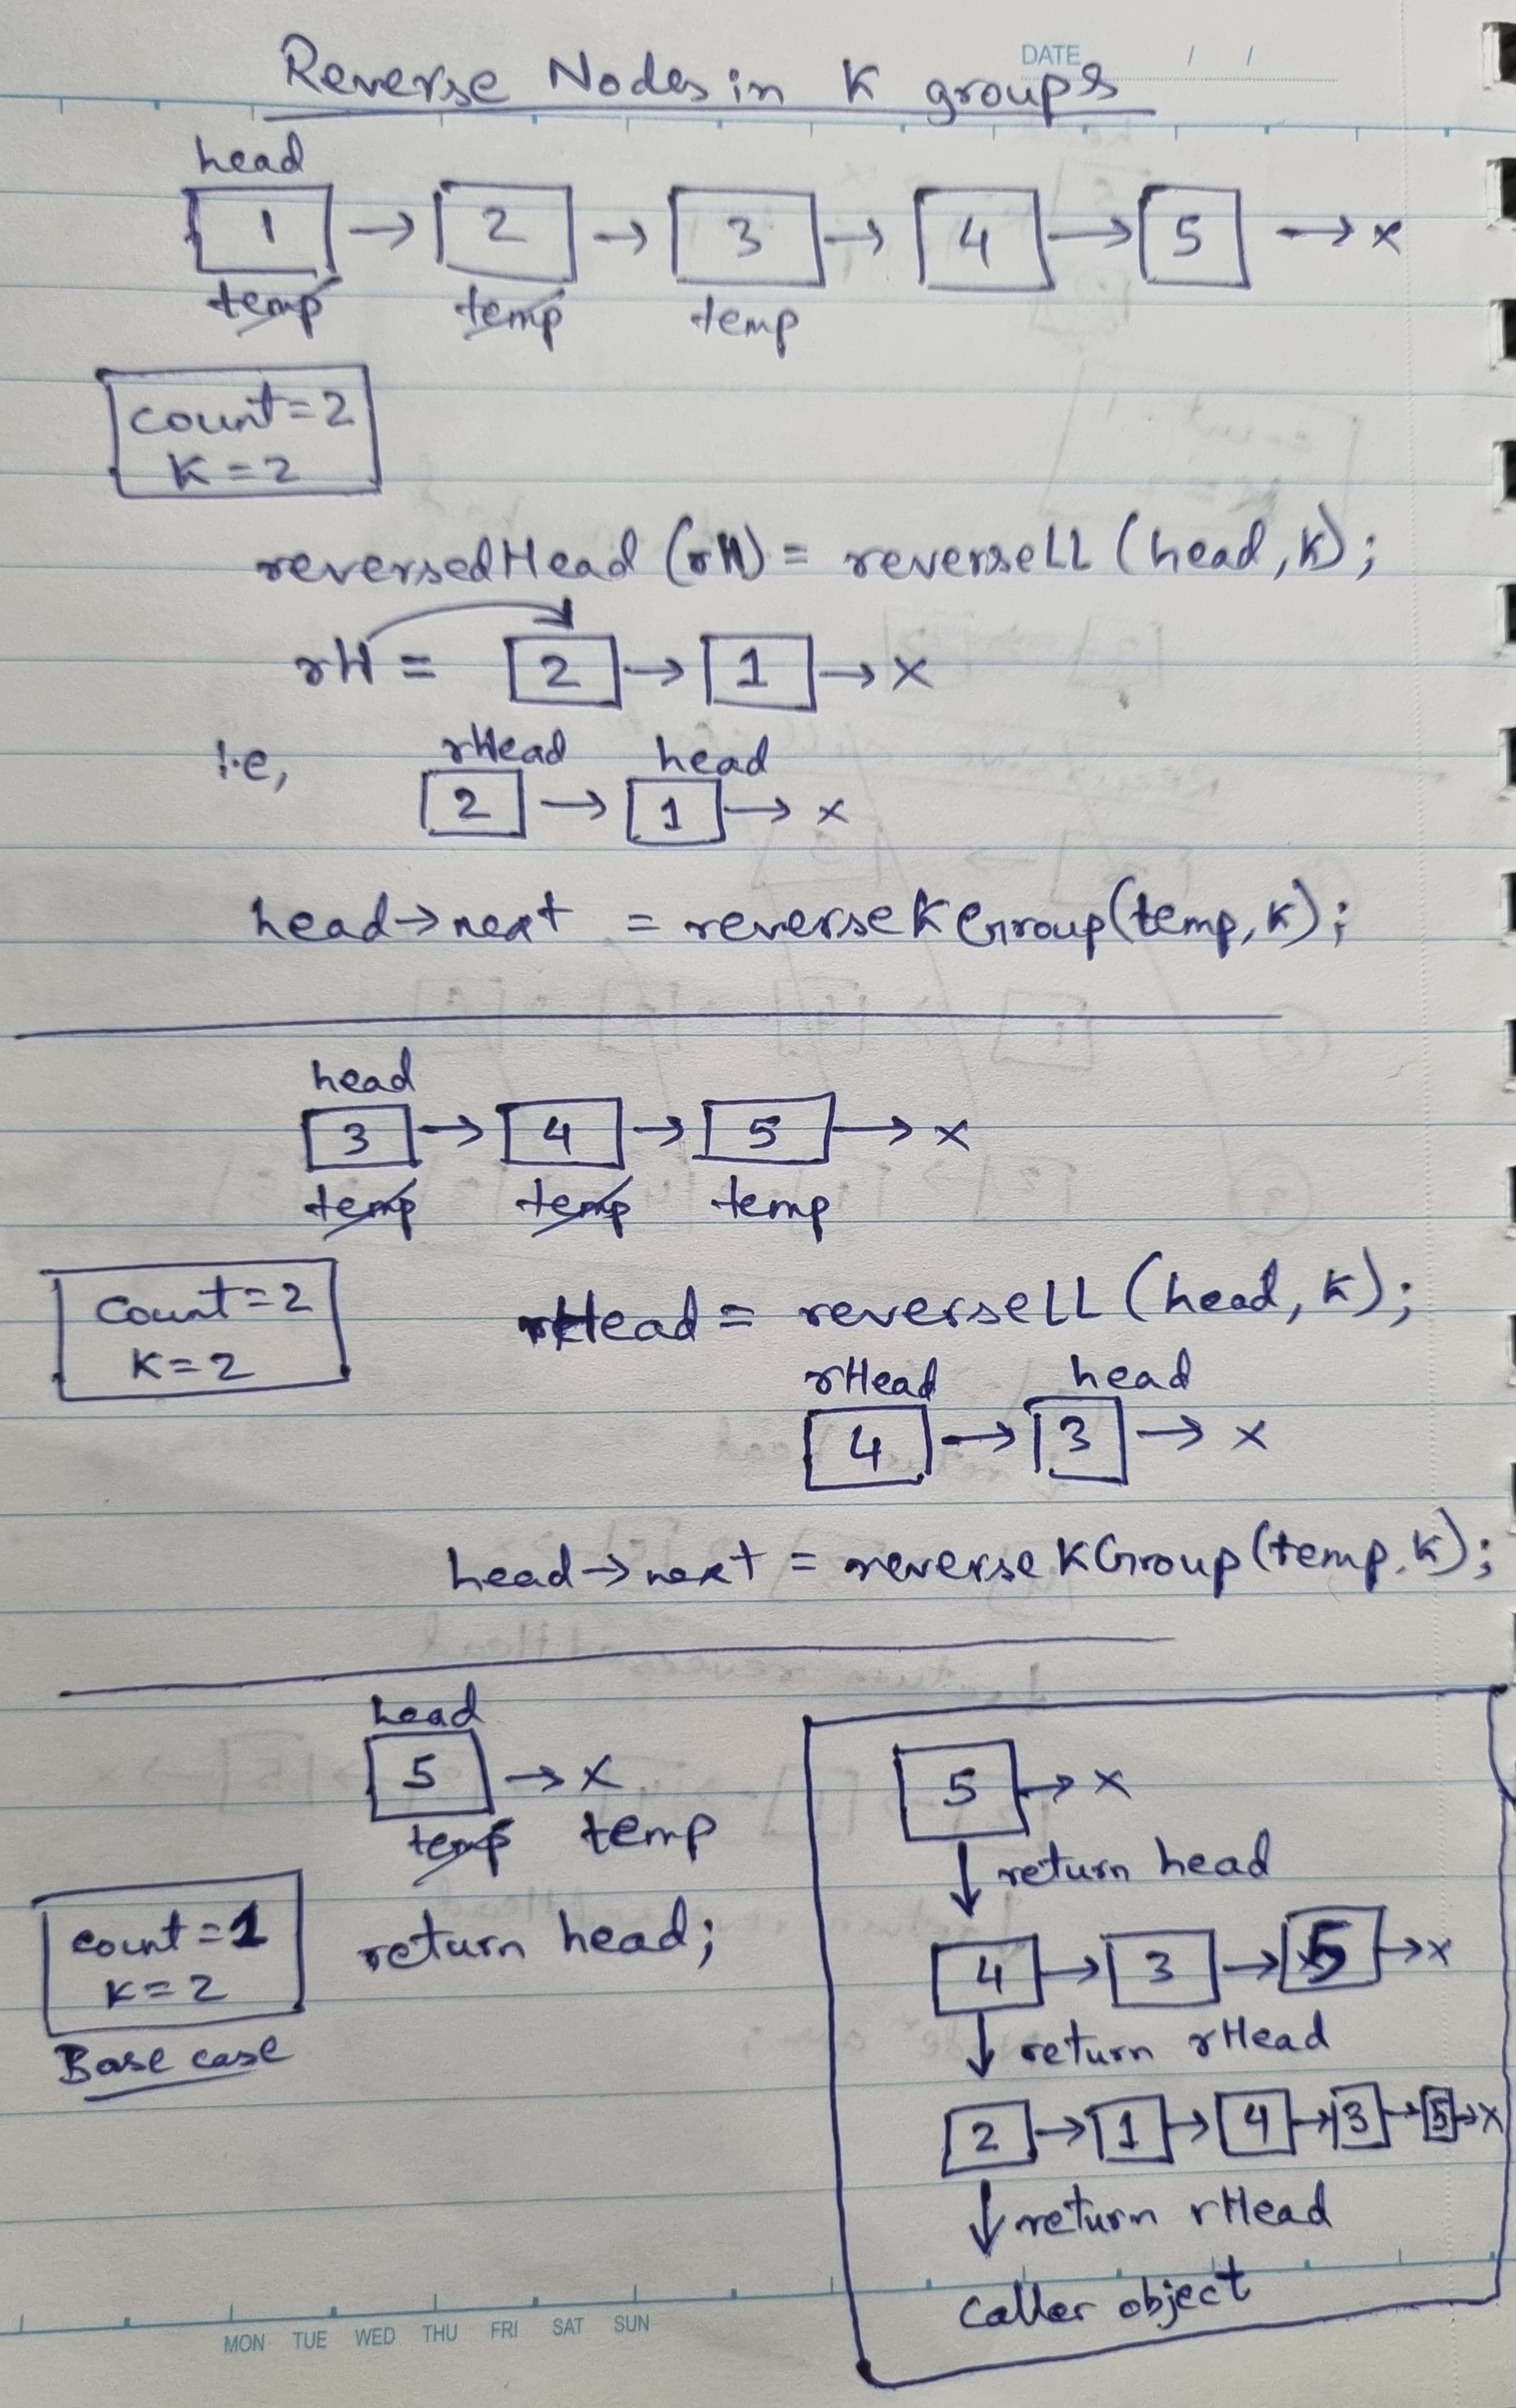 DATE / /
Reverse Nodes in K groups
head
1 → 2 → 3 → 4 → 5 → x
temp temp temp
count=2
K=2
reversedHead (rH) = reverseLL (head, K);
rH = 2 → 1 → x
i.e, rHead head
2 → 1 → x
head→next = reverseKGroup(temp, K);
head
3 → 4 → 5 → x
temp temp temp
Count=2
K=2
rHead = reverseLL (head, K);
rHead head
4 → 3 → x
head→next = reverseKGroup(temp, K);
head
5 → x
temp temp
count=1
K=2
Base case
return head;
5 → x
↓ return head
4 → 3 → 5 → x
↓ return rHead
2 → 1 → 4 → 3 → 5 → x
↓ return rHead
Caller object
MON TUE WED THU FRI SAT SUN